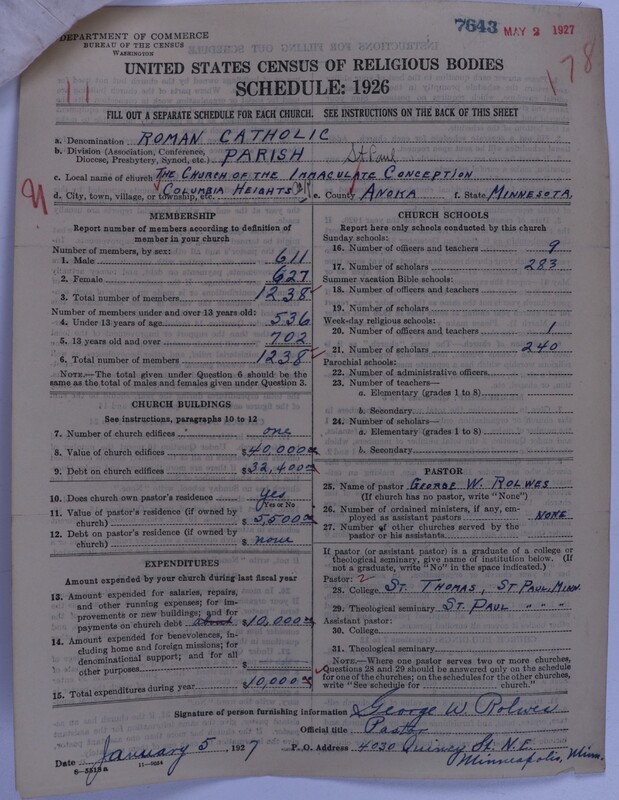 DEPARTMENT OF COMMERCE
BUREAU OF THE CENSUS
WASHINGTON
7643 MAY 2 1927
178
11
UNITED STATES CENSUS OF RELIGIOUS BODIES
SCHEDULE: 1926
FILL OUT A SEPARATE SCHEDULE FOR EACH CHURCH. SEE INSTRUCTIONS ON THE BACK OF THIS SHEET
a. Denomination ROMAN CATHOLIC
b. Division (Association, Conference, Diocese, Presbytery, Synod, etc.) PARISH St Paul
c. Local name of church THE CHURCH OF THE IMMACULATE CONCEPTION
d. City, town, village, or township, etc. COLUMBIA HEIGHTS e. County ANOKA f. State MINNESOTA
MEMBERSHIP
Report number of members according to definition of
member in your church
Number of members, by sex:
1. Male 611
2. Female 627
3. Total number of members 1238
Number of members under and over 13 years old:
4. Under 13 years of age 536
5. 13 years old and over 702
6. Total number of members 1238
NOTE.—The total given under Question 6 should be
same as the total of males and females given under Question 3.
CHURCH BUILDINGS
See instructions, paragraphs 10 to 12
7. Number of church edifices one
8. Value of church edifices $40,000.00
9. Debt on church edifices $32,400.00
10. Does church own pastor's residence yes
(Yes or No)
11. Value of pastor's residence (if owned by
church) $5,500.00
12. Debt on pastor's residence (if owned by
church) $ none
EXPENDITURES
Amount expended by your church during last fiscal year
13. Amount expended for salaries, repairs,
and other running expenses; for im-
provements or new buildings; and for
payments on church debt about $10,000.00
14. Amount expended for benevolences, in-
cluding home and foreign missions; for
denominational support; and for all
other purposes $
15. Total expenditures during year $10,000.00
CHURCH SCHOOLS
Report here only schools conducted by this church
Sunday schools:
16. Number of officers and teachers 9
17. Number of scholars 283
Summer vacation Bible schools:
18. Number of officers and teachers
19. Number of scholars
Week-day religious schools:
20. Number of officers and teachers 1
21. Number of scholars 240
Parochial schools:
22. Number of administrative officers
23. Number of teachers—
a. Elementary (grades 1 to 8)
b. Secondary
24. Number of scholars—
a. Elementary (grades 1 to 8)
b. Secondary
PASTOR
25. Name of pastor GEORGE W. ROLWES
(If church has no pastor, write "None")
26. Number of ordained ministers, if any, em-
ployed as assistant pastors NONE
27. Number of other churches served by the
pastor or his assistants
If pastor (or assistant pastor) is a graduate of a college or
theological seminary, give name of institution below. (If
not a graduate, write "No" in the space indicated.)
Pastor: 2
28. College ST. THOMAS, ST PAUL, MINN.
29. Theological seminary ST. PAUL " " "
Assistant pastor:
30. College
31. Theological seminary
NOTE.—Where one pastor serves two or more churches,
Questions 28 and 29 should be answered only on the schedule
for one of the churches; on the schedules for the other churches,
write "See schedule for church."
Signature of person furnishing information George W. Rolwes
Official title Pastor
Date January 5, 1927 P. O. Address 4030 Quincy St. N.E.
Minneapolis, Minn.
8-5518a 11-9054